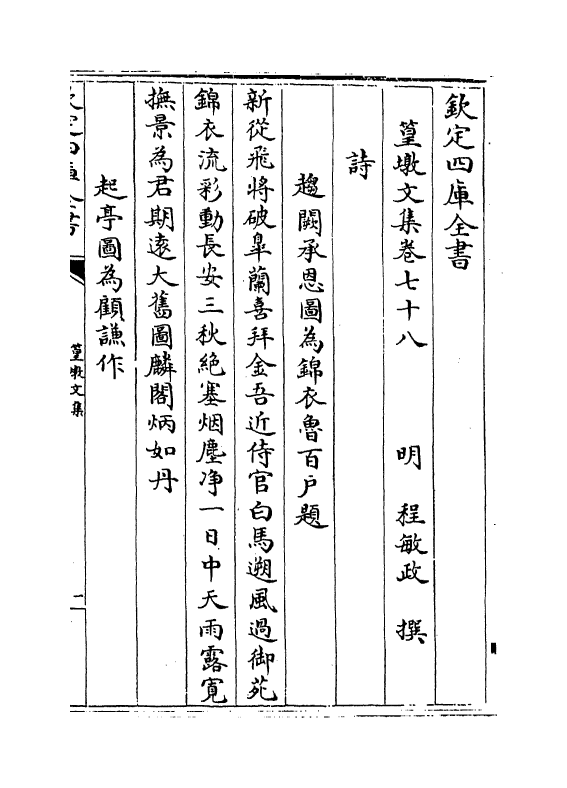 欽定四庫全書
篁墩文集卷七十八 明 程敏政 撰
詩
趨闕承恩圖為錦衣魯百戶題
新從飛將破臯蘭喜拜金吾近侍官白馬遡風過御苑
錦衣流彩動長安三秋絶塞烟塵净一日中天雨露寛
撫景為君期遠大舊圖麟閣炳如丹
起亭圖為顧謙作
欽定四庫全書
篁墩文集